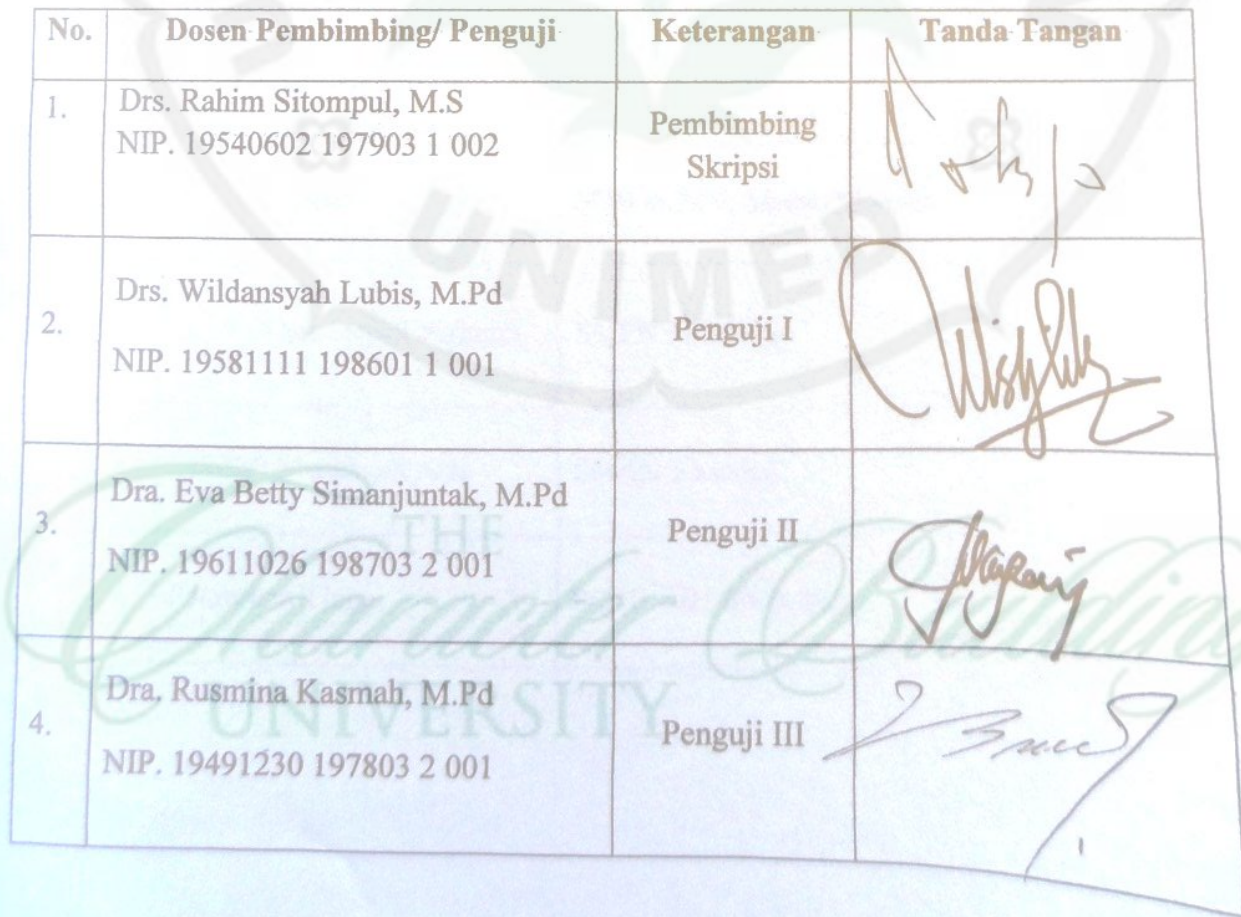 No. Dosen Pembimbing/ Penguji Keterangan Tanda Tangan
1. Drs. Rahim Sitompul, M.S
NIP. 19540602 197903 1 002
Pembimbing
Skripsi
Drs. Wildansyah Lubis, M.Pd
2.
NIP. 19581111 198601 1 001
Penguji I
Dra. Eva Betty Simanjuntak, M.Pd
3.
NIP. 19611026 198703 2 001
Penguji II
Dra. Rusmina Kasmah, M.Pd
4.
NIP. 19491230 197803 2 001
Penguji III
UNIMED
THE
Character Building
UNIVERSITY